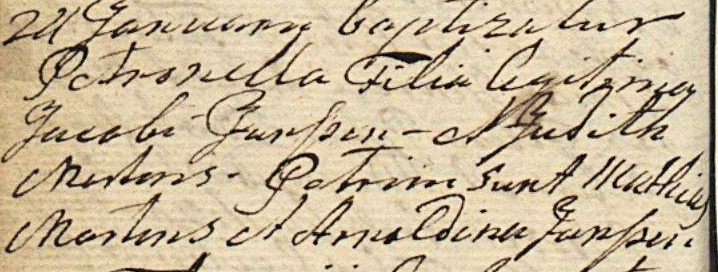 24 January baptizatur
Petronella Filia legitima
Jacobi Janssen - et Judith
Martens - Patrini sunt Mathias
Martens et Arnoldina Janssen